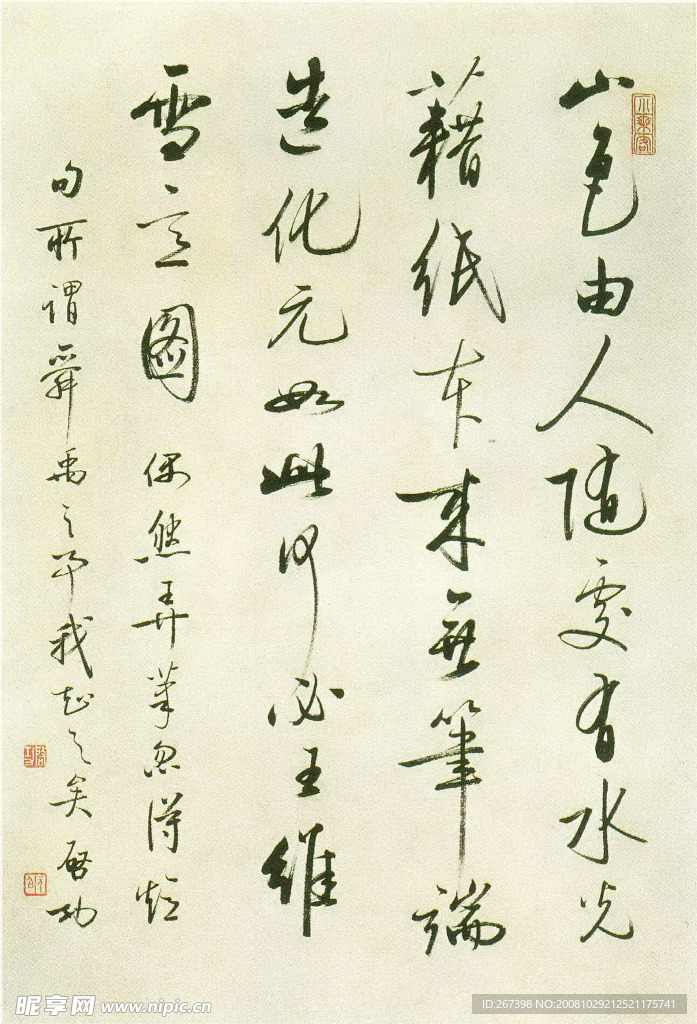 小乘客
山色由人随處有水光
藉紙本来無筆端
造化元如此何必王維
雪意图 偶然弄筆忽得短
句所謂舜禹之事我知之矣 啓功
昵享网 www.nipic.cn
ID:267398 NO:20081029212521175741